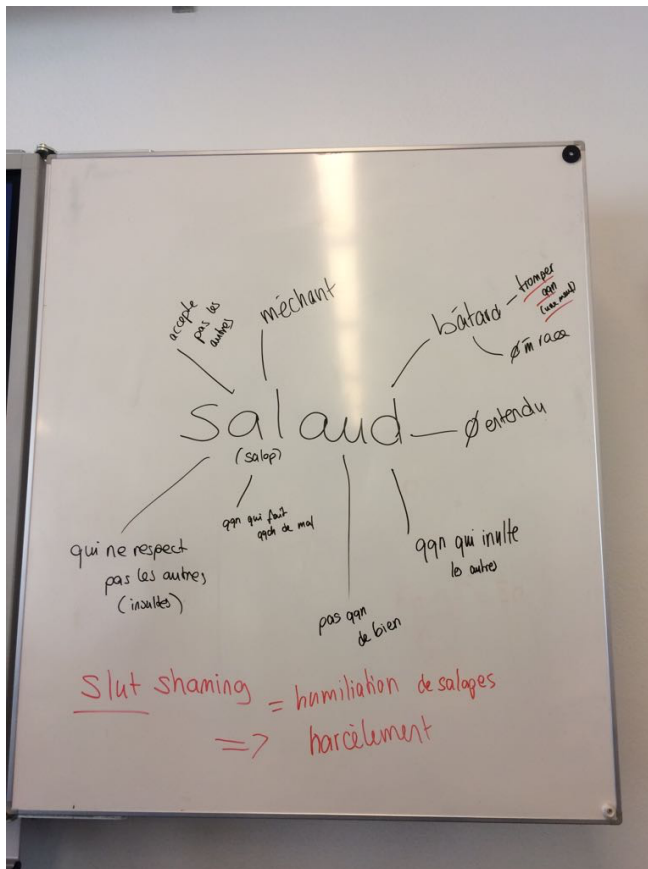 accepte
pas les
autres
méchant
bâtard
tromper
qqn
(une meuf)
Ø m̄ race
salaud
(salop)
Ø entendu
qui ne respect
pas les autres
(insultes)
qqn qui fait
qqch de mal
pas qqn
de bien
qqn qui inulte
les autres
Slut shaming = humiliation de salopes
=> harcèlement